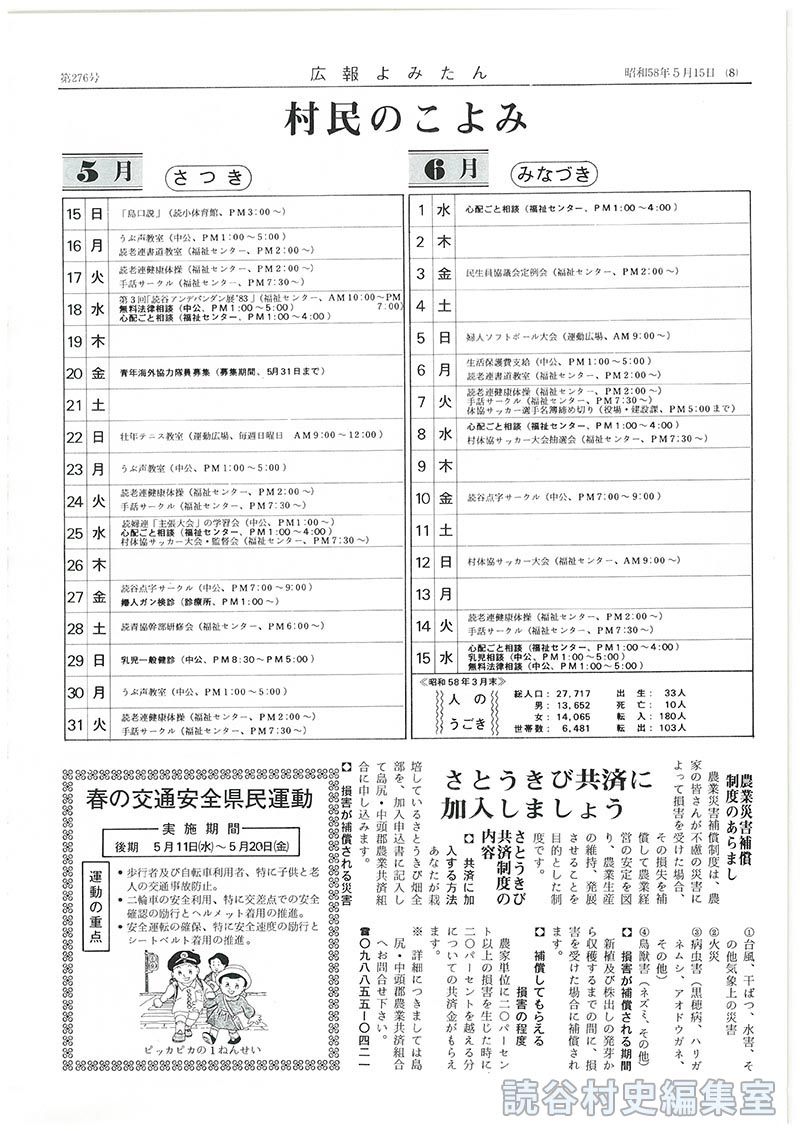 第276号
広報よみたん
昭和58年5月15日 (8)
村民のこよみ
5月 さつき
15 日 「島口説」(読小体育館、PM3:00〜)
16 月 うぶ声教室(中公、PM1:00〜5:00)
読老連書道教室(福祉センター、PM2:00〜)
17 火 読老連健康体操(福祉センター、PM2:00〜)
手話サークル(福祉センター、PM7:30〜)
18 水 第3回「読谷アンデパンダン展'83」(福祉センター、AM10:00〜PM
7:00)
無料法律相談(中公、PM1:00〜5:00)
心配ごと相談(福祉センター、PM1:00〜4:00)
19 木
20 金 青年海外協力隊員募集(募集期間、5月31日まで)
21 土
22 日 壮年テニス教室(運動広場、毎週日曜日 AM9:00〜12:00)
23 月 うぶ声教室(中公、PM1:00〜5:00)
24 火 読老連健康体操(福祉センター、PM2:00〜)
手話サークル(福祉センター、PM7:30〜)
25 水 読婦連「主張大会」の学習会(中公、PM1:00〜)
心配ごと相談(福祉センター、PM1:00〜4:00)
村体協サッカー大会・監督会(福祉センター、PM7:30〜)
26 木
27 金 読谷点字サークル(中公、PM7:00〜9:00)
婦人ガン検診(診療所、PM1:00〜)
28 土 読青協幹部研修会(福祉センター、PM6:00〜)
29 日 乳児一般健診(中公、PM8:30〜PM5:00)
30 月 うぶ声教室(中公、PM1:00〜5:00)
31 火 読老連健康体操(福祉センター、PM2:00〜)
手話サークル(福祉センター、PM7:30〜)
6月 みなづき
1 水 心配ごと相談(福祉センター、PM1:00〜4:00)
2 木
3 金 民生員協議会定例会(福祉センター、PM2:00〜)
4 土
5 日 婦人ソフトボール大会(運動広場、AM9:00〜)
6 月 生活保護費支給(中公、PM1:00〜5:00)
読老連書道教室(福祉センター、PM2:00〜)
7 火 読老連健康体操(福祉センター、PM2:00〜)
手話サークル(福祉センター、PM7:30〜)
体協サッカー選手名簿締め切り(役場・建設課、PM5:00まで)
8 水 心配ごと相談(福祉センター、PM1:00〜4:00)
村体協サッカー大会抽選会(福祉センター、PM7:30〜)
9 木
10 金 読谷点字サークル(中公、PM7:00〜9:00)
11 土
12 日 村体協サッカー大会(福祉センター、AM9:00〜)
13 月
14 火 読老連健康体操(福祉センター、PM2:00〜)
手話サークル(福祉センター、PM7:30〜)
15 水 心配ごと相談(福祉センター、PM1:00〜4:00)
乳児相談(中公、PM1:00〜5:00)
無料法律相談(中公、PM1:00〜5:00)
≪昭和58年3月末≫
人の
うごき
総人口:27,717 出生:33人
男:13,652 死亡:10人
女:14,065 転入:180人
世帯数:6,481 転出:103人
さとうきび共済に
加入しましょう
農業災害補償
制度のあらまし
農業災害補償制度は、農
家の皆さんが不慮の災害に
よって損害を受けた場合、
その損失を補
償して農業経
営の安定を図
り、農業生産
の維持、発展
させることを
目的とした制
度です。
さとうきび
共済制度の
内容
【共済に加
入する方法
あなたが栽
培しているさとうきび畑全
部を、加入申込書に記入し
て島尻・中頭郡農業共済組
合に申し込みます。
【損害が補償される災害
①台風、干ばつ、水害、そ
の他気象上の災害
②火災
③病虫害(黒穂病、ハリガ
ネムシ、アオドウガネ、
その他)
④鳥獣害(ネズミ、その他)
【損害が補償される期間
新植及び株出しの発芽か
ら収穫するまでの間に、損
害を受けた場合に補償され
ます。
【補償してもらえる
損害の程度
農家単位に二〇パーセン
ト以上の損害を生じた時に、
二〇パーセントを越える分
についての共済金がもらえ
ます。
※詳細につきましては島
尻・中頭郡農業共済組合
へお問合せ下さい。
☎〇九八八五五一〇四二一
春の交通安全県民運動
実施期間
後期 5月11日(水)〜5月20日(金)
運動の重点
・歩行者及び自転車利用者、特に子供と老
人の交通事故防止。
・二輪車の安全利用、特に交差点での安全
確認の励行とヘルメット着用の推進。
・安全運転の確保、特に安全速度の励行と
シートベルト着用の推進。
ピッカピカの1ねんせい
読谷村史編集室